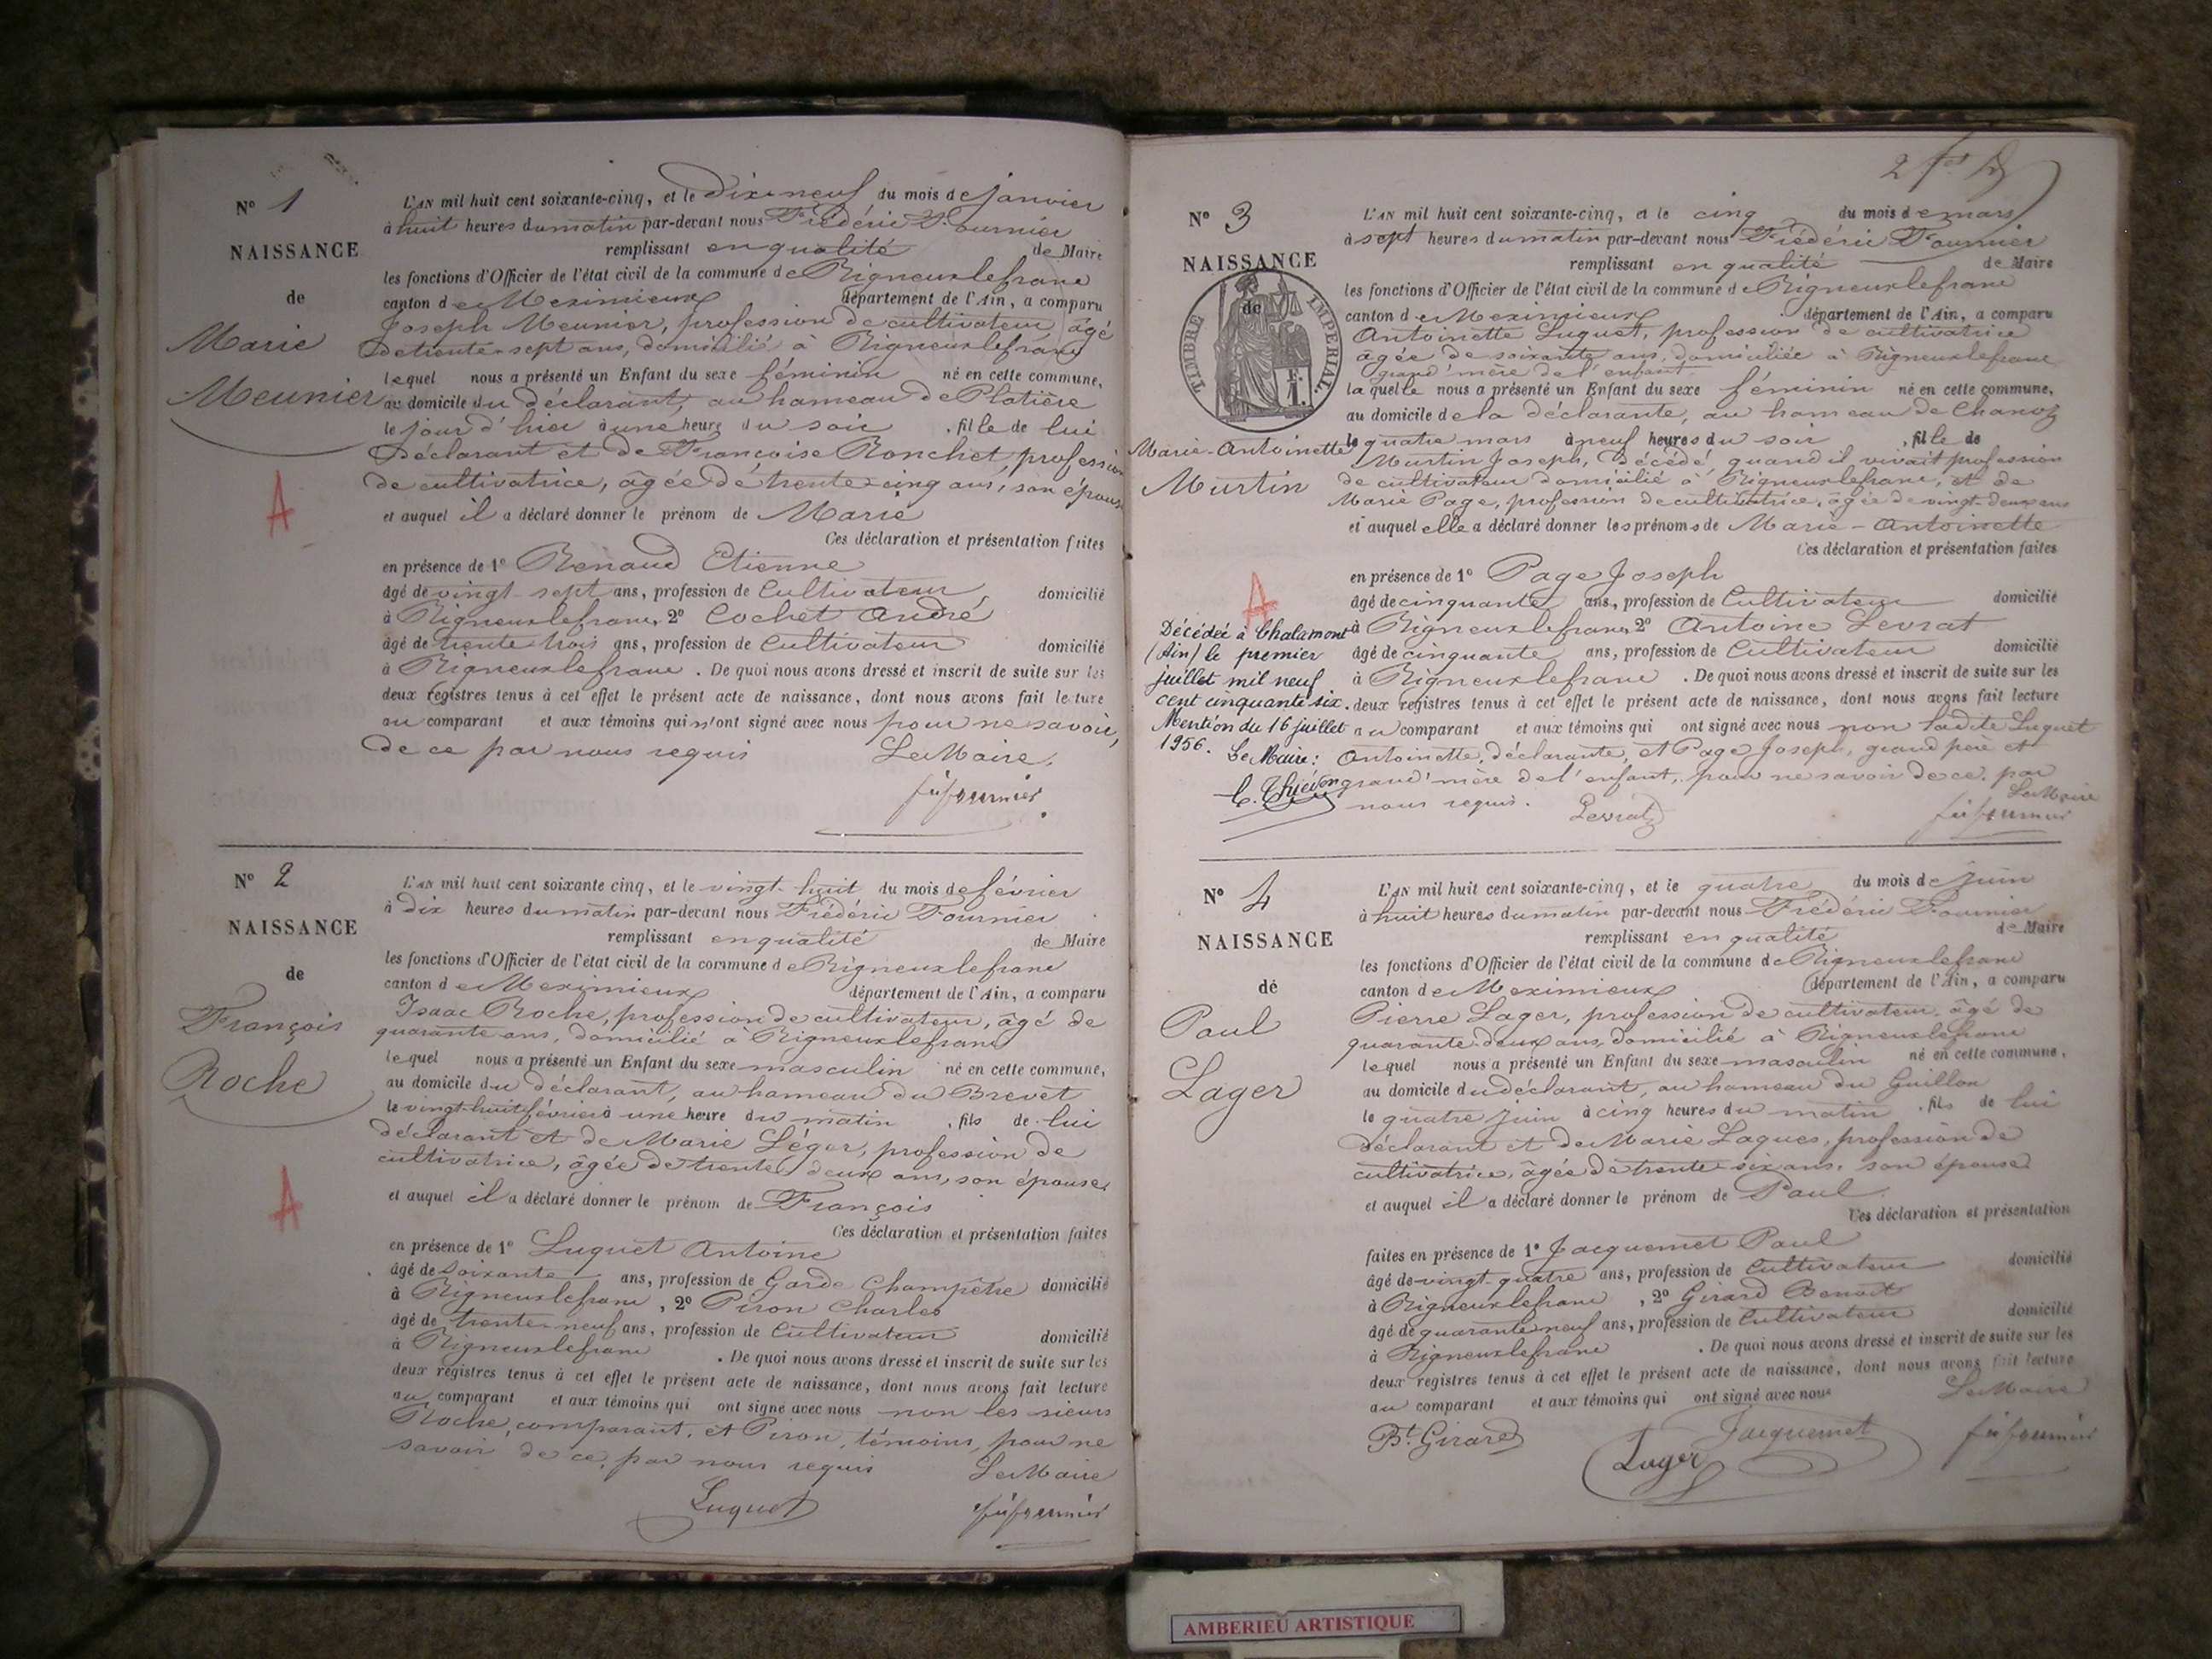 N° 1
NAISSANCE
de
Marie
Meunier
A
L'AN mil huit cent soixante-cinq, et le Dix-neuf du mois de janvier
à huit heures du matin par-devant nous Frédéric Fournier
remplissant en qualité de Maire
les fonctions d'Officier de l'état civil de la commune de Rigneux le franc
canton de Meximieux département de l'Ain, a comparu
Joseph Meunier, profession de cultivateur, âgé
de trente-sept ans, domicilié à Rigneux le franc
lequel nous a présenté un Enfant du sexe féminin né en cette commune,
au domicile du déclarant, au hameau de Platière
le jour d'hier à une heure du soir, fille de lui
déclarant et de Françoise Ronchet, profession
de cultivatrice, âgée de trente-cinq ans, son épouse
et auquel il a déclaré donner le prénom de Marie
Ces déclaration et présentation faites
en présence de 1° Renaud Etienne
âgé de vingt-sept ans, profession de Cultivateur domicilié
à Rigneux le franc, 2° Cochet André
âgé de trente trois ans, profession de Cultivateur domicilié
à Rigneux le franc. De quoi nous avons dressé et inscrit de suite sur les
deux registres tenus à cet effet le présent acte de naissance, dont nous avons fait lecture
au comparant et aux témoins qui n'ont signé avec nous pour ne savoir,
de ce par nous requis Le Maire,
fr fournier
N° 2
NAISSANCE
de
François
Roche
A
L'AN mil huit cent soixante cinq, et le vingt-huit du mois de février
à dix heures du matin par-devant nous Frédéric Fournier
remplissant en qualité de Maire
les fonctions d'Officier de l'état civil de la commune de Rigneux le franc
canton de Meximieux département de l'Ain, a comparu
Isaac Roche, profession de cultivateur, âgé de
quarante ans, domicilié à Rigneux le franc
lequel nous a présenté un Enfant du sexe masculin né en cette commune,
au domicile du déclarant, au hameau du Brevet
le vingt-huit février à une heure du matin, fils de lui
déclarant et de Marie Léger, profession de
cultivatrice, âgée de trente deux ans, son épouse
et auquel il a déclaré donner le prénom de François
Ces déclaration et présentation faites
en présence de 1° Luquet Antoine
âgé de soixante ans, profession de Garde Champêtre domicilié
à Rigneux le franc, 2° Piron Charles
âgé de trente-neuf ans, profession de Cultivateur domicilié
à Rigneux le franc. De quoi nous avons dressé et inscrit de suite sur les
deux registres tenus à cet effet le présent acte de naissance, dont nous avons fait lecture
au comparant et aux témoins qui ont signé avec nous non les sieurs
Roche, comparant, et Piron, témoins, pour ne
savoir de ce, par nous requis Le Maire
Luquet fr fournier
N° 3
NAISSANCE
de
TIMBRE IMPERIAL
Marie-Antoinette
Murtin
A
Décédée à Chalamont
(Ain) le premier
juillet mil neuf
cent cinquante six.
Mention du 16 juillet
1956.
Le Maire:
L'AN mil huit cent soixante-cinq, et le cinq du mois de mars
à sept heures du matin par-devant nous Frédéric Fournier
remplissant en qualité de Maire
les fonctions d'Officier de l'état civil de la commune de Rigneux le franc
canton de Meximieux département de l'Ain, a comparu
Antoinette Luquet, profession de cultivatrice
âgée de soixante ans, domiciliée à Rigneux le franc
grand'mère de l'enfant
laquelle nous a présenté un Enfant du sexe féminin né en cette commune,
au domicile de la déclarante, au hameau de Chanoz
le quatre mars à neuf heures du soir, fille de
Murtin Joseph, décédé, quand il vivait profession
de cultivateur domicilié à Rigneux le franc, et de
Marie Page, profession de cultivatrice, âgée de vingt-deux ans
et auquel elle a déclaré donner les prénoms de Marie-Antoinette
Ces déclaration et présentation faites
en présence de 1° Page Joseph
âgé de cinquante ans, profession de Cultivateur domicilié
à Rigneux le franc, 2° Antoine Levrat
âgé de cinquante ans, profession de Cultivateur domicilié
à Rigneux le franc. De quoi nous avons dressé et inscrit de suite sur les
deux registres tenus à cet effet le présent acte de naissance, dont nous avons fait lecture
au comparant et aux témoins qui ont signé avec nous non ladite Luquet
Antoinette, déclarante, et Page Joseph, grand père et
grand'mère de l'enfant, pour ne savoir de ce, par
nous requis. Le Maire
Levrat fr fournier
N° 4
NAISSANCE
de
Paul
Lager
L'AN mil huit cent soixante-cinq, et le quatre du mois de juin
à huit heures du matin par-devant nous Frédéric Fournier
remplissant en qualité de Maire
les fonctions d'Officier de l'état civil de la commune de Rigneux le franc
canton de Meximieux département de l'Ain, a comparu
Pierre Lager, profession de cultivateur, âgé de
quarante-deux ans, domicilié à Rigneux le franc
lequel nous a présenté un Enfant du sexe masculin né en cette commune,
au domicile du déclarant, au hameau du Guillon
le quatre juin à cinq heures du matin, fils de lui
déclarant et de Marie Laques, profession de
cultivatrice, âgée de trente-six ans, son épouse
et auquel il a déclaré donner le prénom de Paul
Ces déclaration et présentation
faites en présence de 1° Jacquemet Paul
âgé de vingt-quatre ans, profession de Cultivateur domicilié
à Rigneux le franc, 2° Girard Benoît
âgé de quarante neuf ans, profession de Cultivateur domicilié
à Rigneux le franc. De quoi nous avons dressé et inscrit de suite sur les
deux registres tenus à cet effet le présent acte de naissance, dont nous avons fait lecture
au comparant et aux témoins qui ont signé avec nous Le Maire
Bt. Girard Lager Jacquemet fr fournier
AMBERIEU ARTISTIQUE